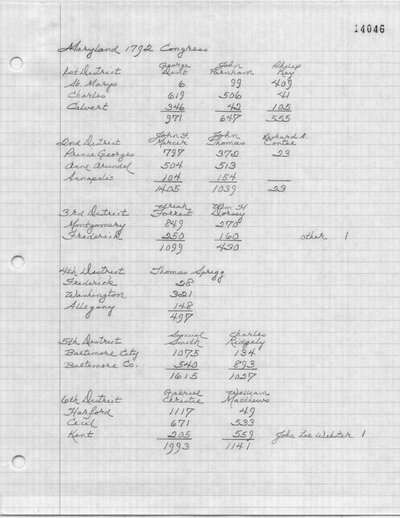 14046
Maryland 1792 Congress
George John Philip
1st District Dent Parnham Key
St. Marys 6 99 409
Charles 619 506 41
Calvert 346 42 105
971 647 555
John F. John Richard A.
2nd District Mercer Thomas Contee
Prince Georges 797 372 23
Anne Arundel 504 513
Annapolis 104 154
1405 1039 23
Uriah Wm H
3rd District Forrest Dorsey
Montgomery 849 270
Frederick 250 160 other 1
1099 430
4th District Thomas Sprigg
Frederick 28
Washington 321
Allegany 148
497
Samuel Charles
5th District Smith Ridgely
Baltimore City 1075 134
Baltimore Co. 540 893
1615 1027
Gabriel William
6th District Christie Matthews
Harford 1117 49
Cecil 671 533
Kent 205 559 John Lee Webster 1
1993 1141